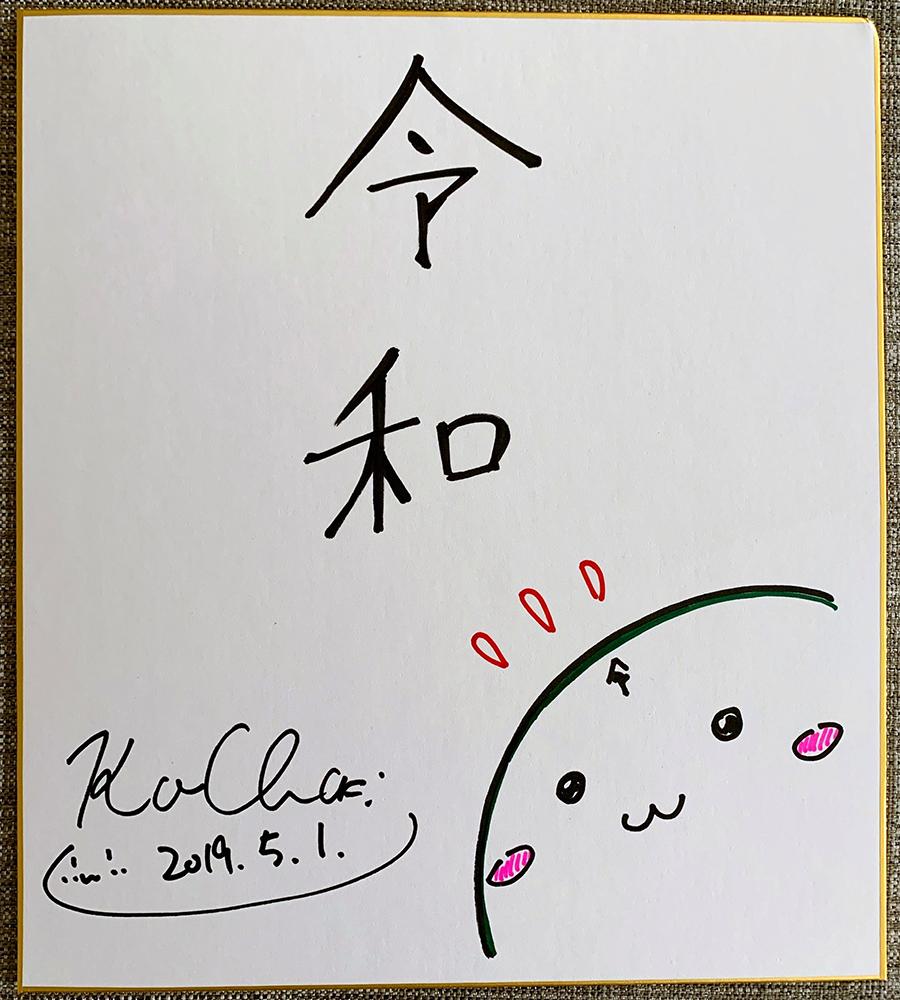 令和
令
KoChaK:
2019.5.1.